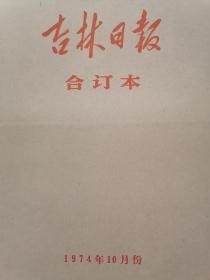 吉林日报
合订本
1974年10月份